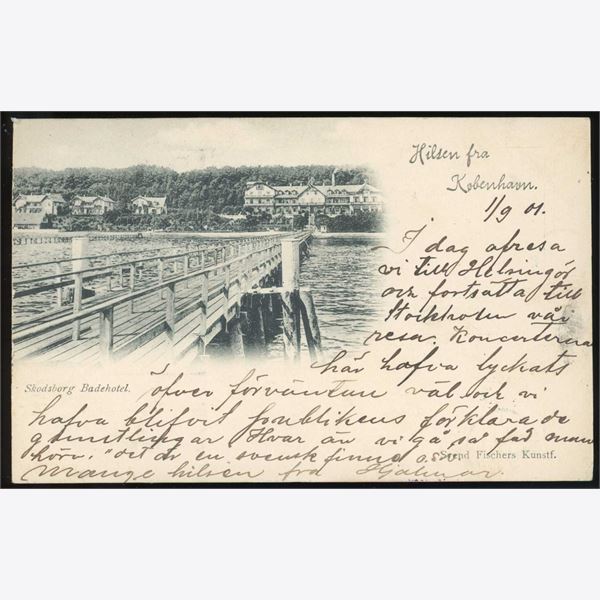 Hilsen fra
København.
1/9 01.
I dag afresa
vi till Helsingör
och fortsätta till
Stockholm vår
resa. Koncerterna
här hafva lyckats
Skodsborg Badehotel.
öfver förväntan väl och vi
hafva blifvit publikens förklarade
gunstlingar Hvar än vi gå så får man
höra. "det är en svensk finne o.s.v.
Svend Fischers Kunstf.
Mange hilsen fra Hjalmar.